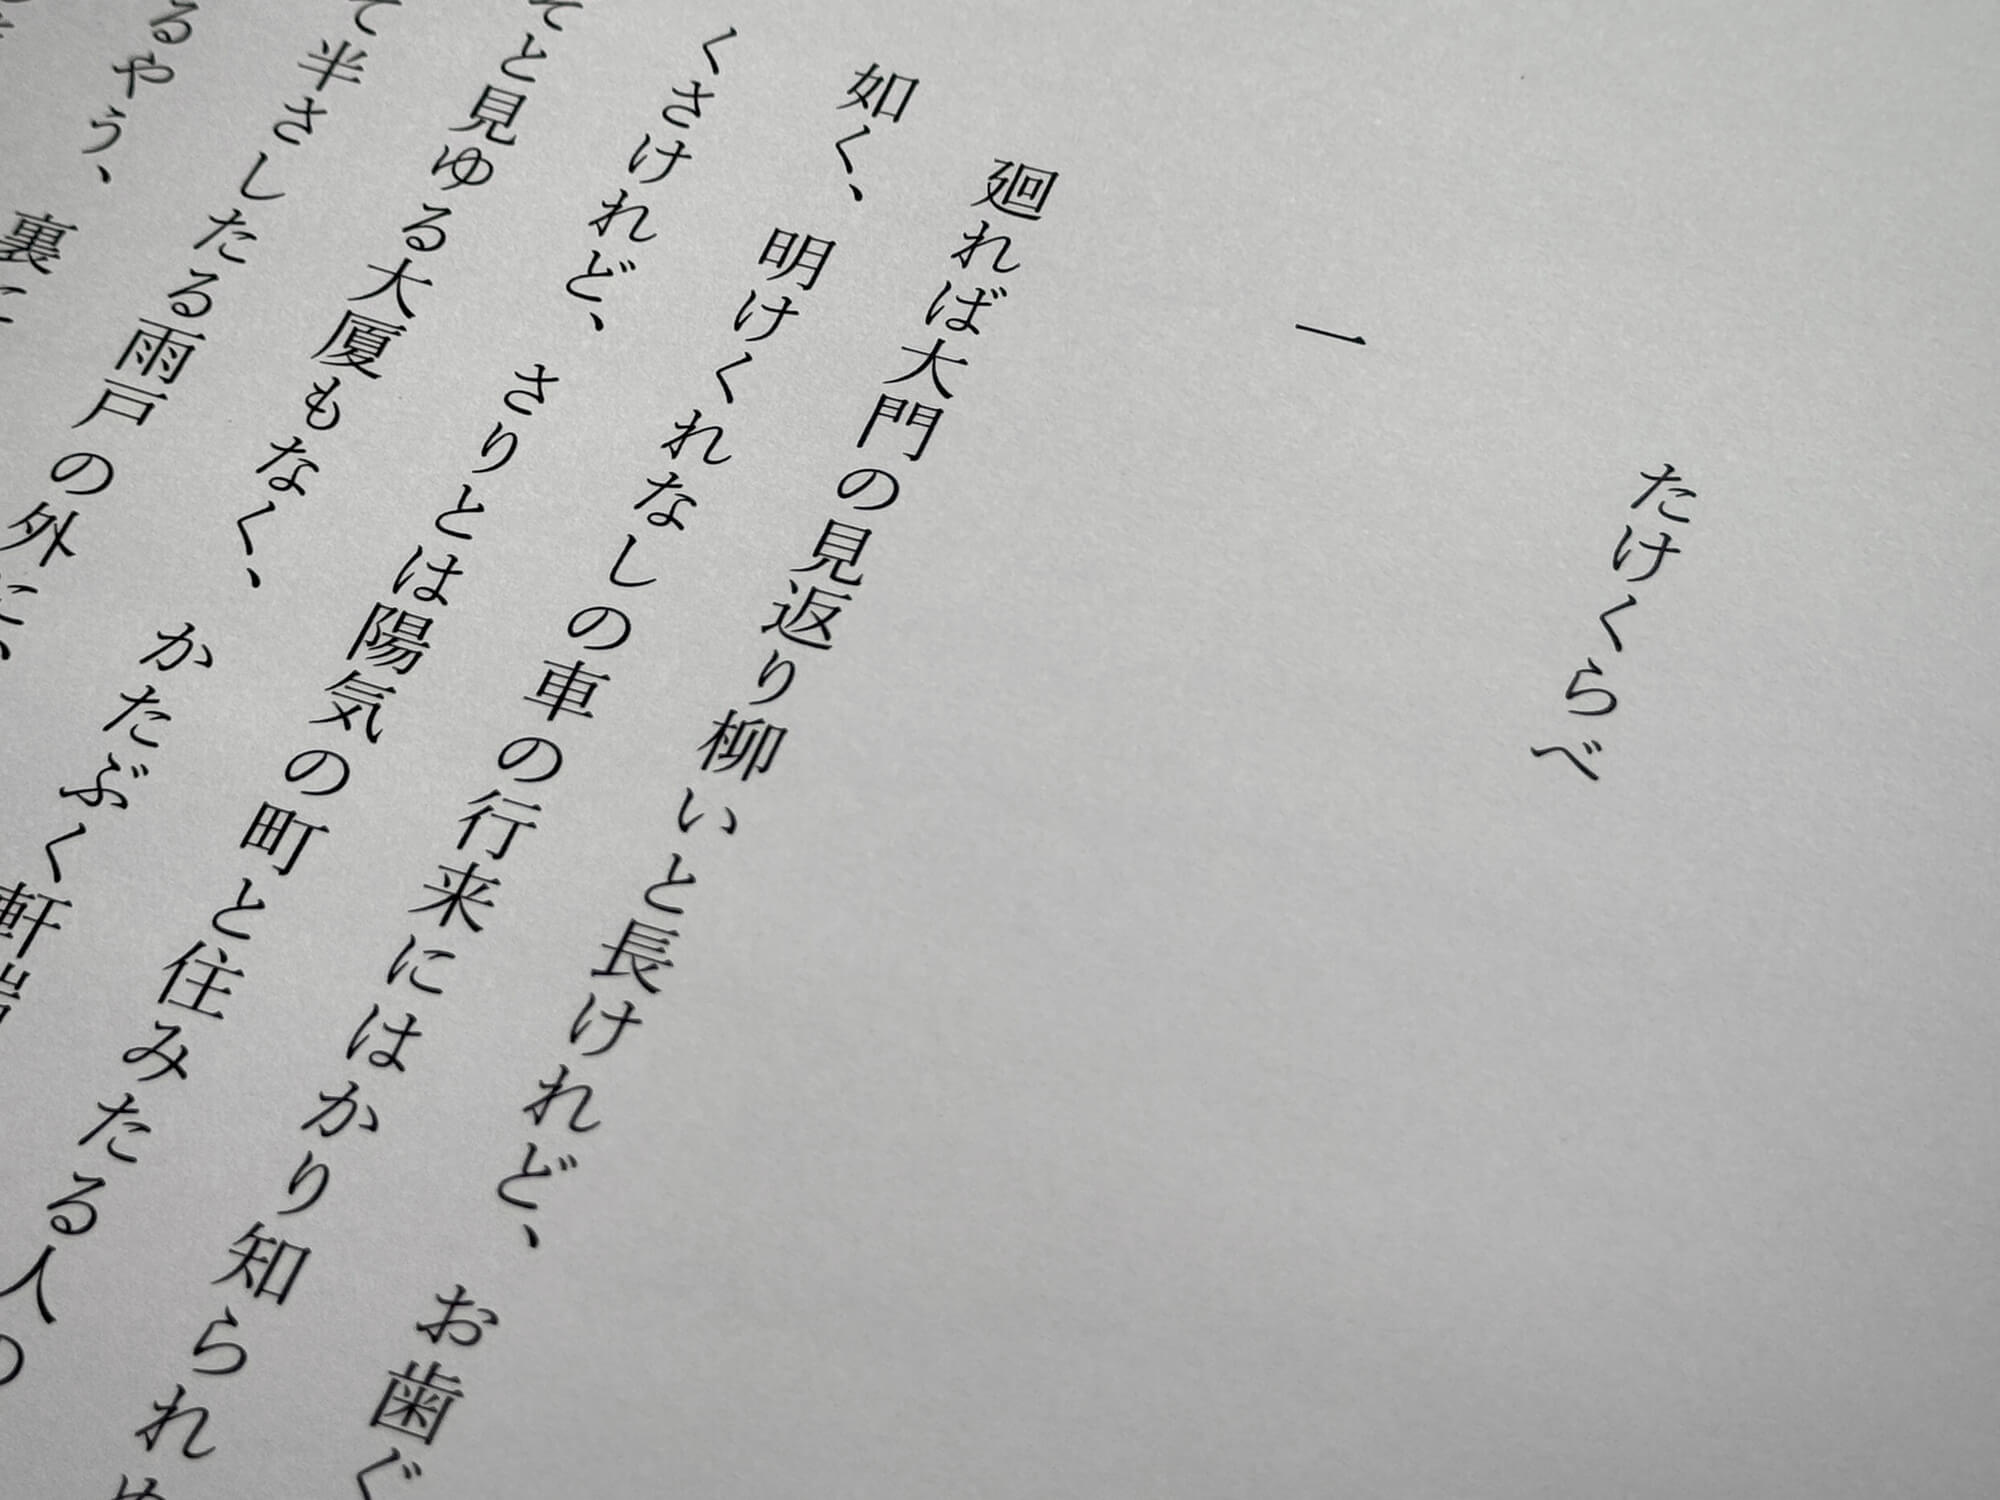 たけくらべ
一
廻れば大門の見返り柳いと長けれど、お歯ぐ
如く、明けくれなしの車の行来にはかり知られ
くさけれど、さりとは陽気の町と住みたる人の
と見ゆる大厦もなく、かたぶく軒端
て半さしたる雨戸の外に、
るやう、裏に